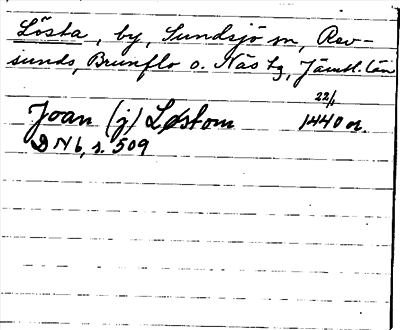 Lösta, by, Sundsjö sn, Rev-
sunds, Brunflo o. Näs tg, Jämtl. län
Joan (j) Løstom 22/1 1440 or.
DN 6, s. 509